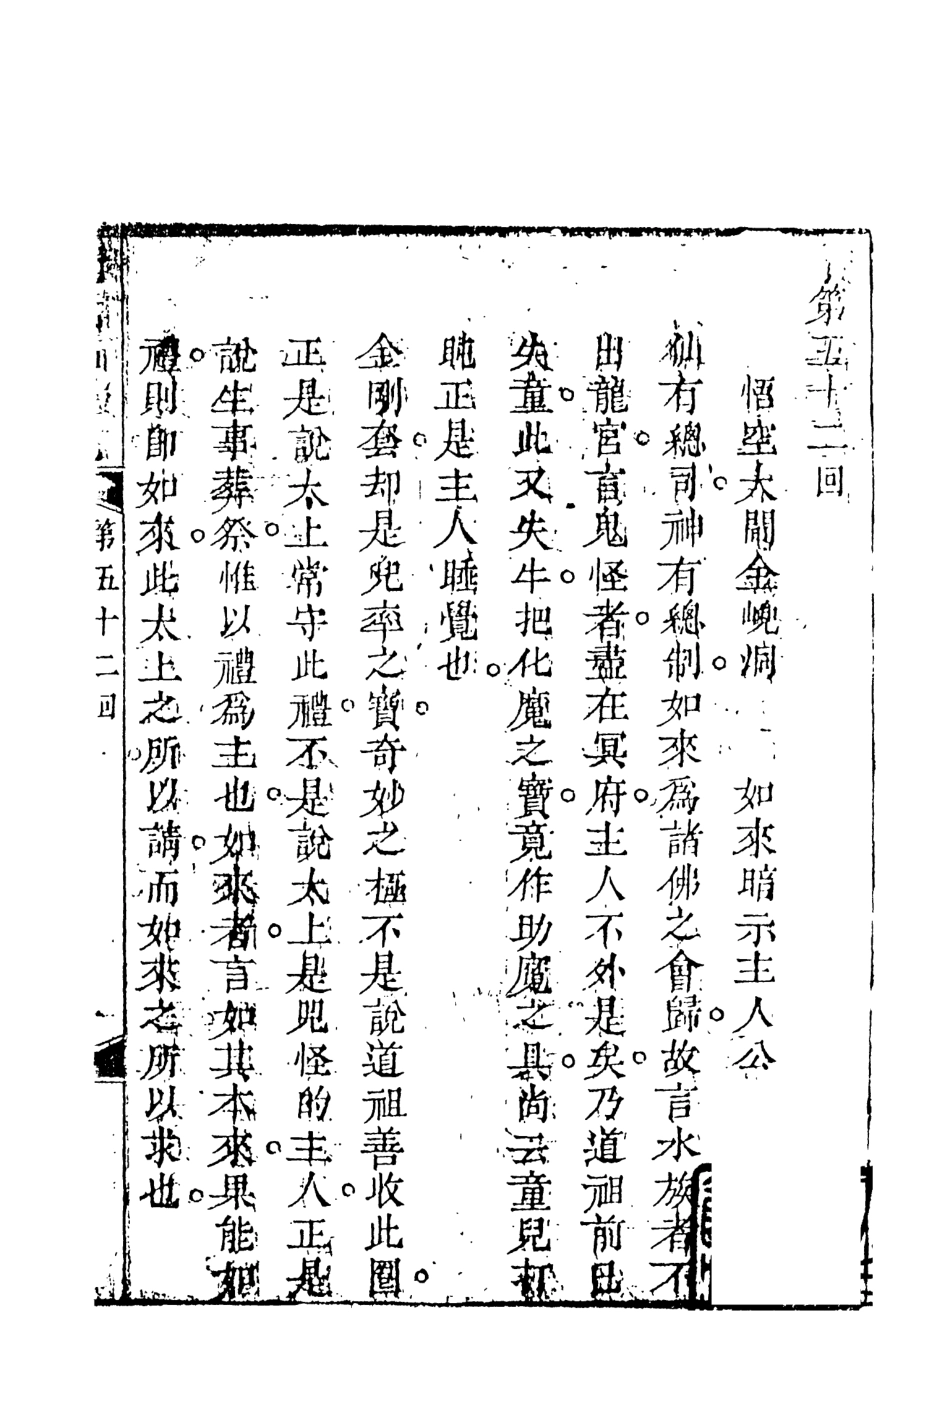 第五十二回
悟空大鬧金㠋洞　如來暗示主人公
仙有總司。神有總制。如來爲諸佛之會歸。故言水族者不
出龍宮。言鬼怪者。盡在冥府。主人不外是矣。乃道祖前已
失童。此又失牛。把化魔之寶。竟作助魔之具。尚云童兒打
盹。正是主人睡覺也。
金剛套。却是兜率之寶。奇妙之極。不是說道祖善收此圈。
正是說太上常守此禮。不是說太上是兕怪的主人。正是
說生事葬祭。惟以禮爲主也。如來者。言如其本來。果能如
禮。則卽如來。此太上之所以請。而如來之所以求也。
第五十二回